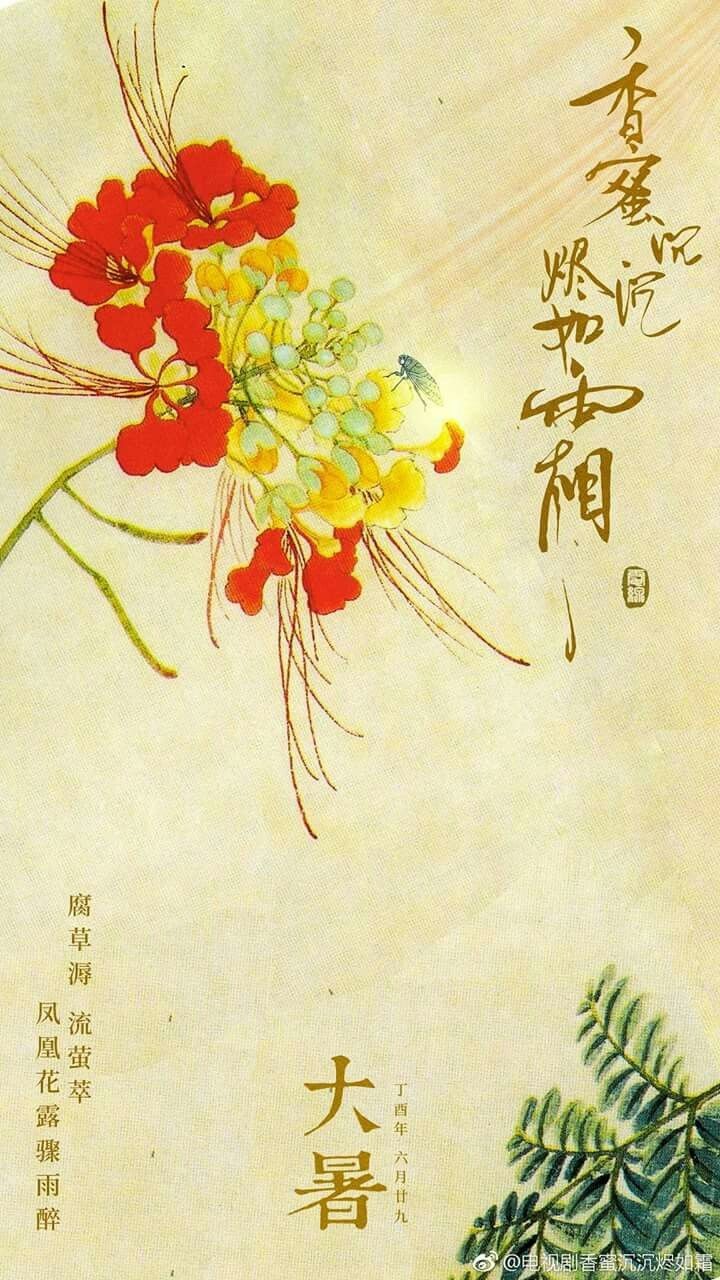 香蜜
沉沉
烬如霜
腐草溽 流萤萃
凤凰花露骤雨醉
大暑
丁酉年 六月廿九
@电视剧香蜜沉沉烬如霜